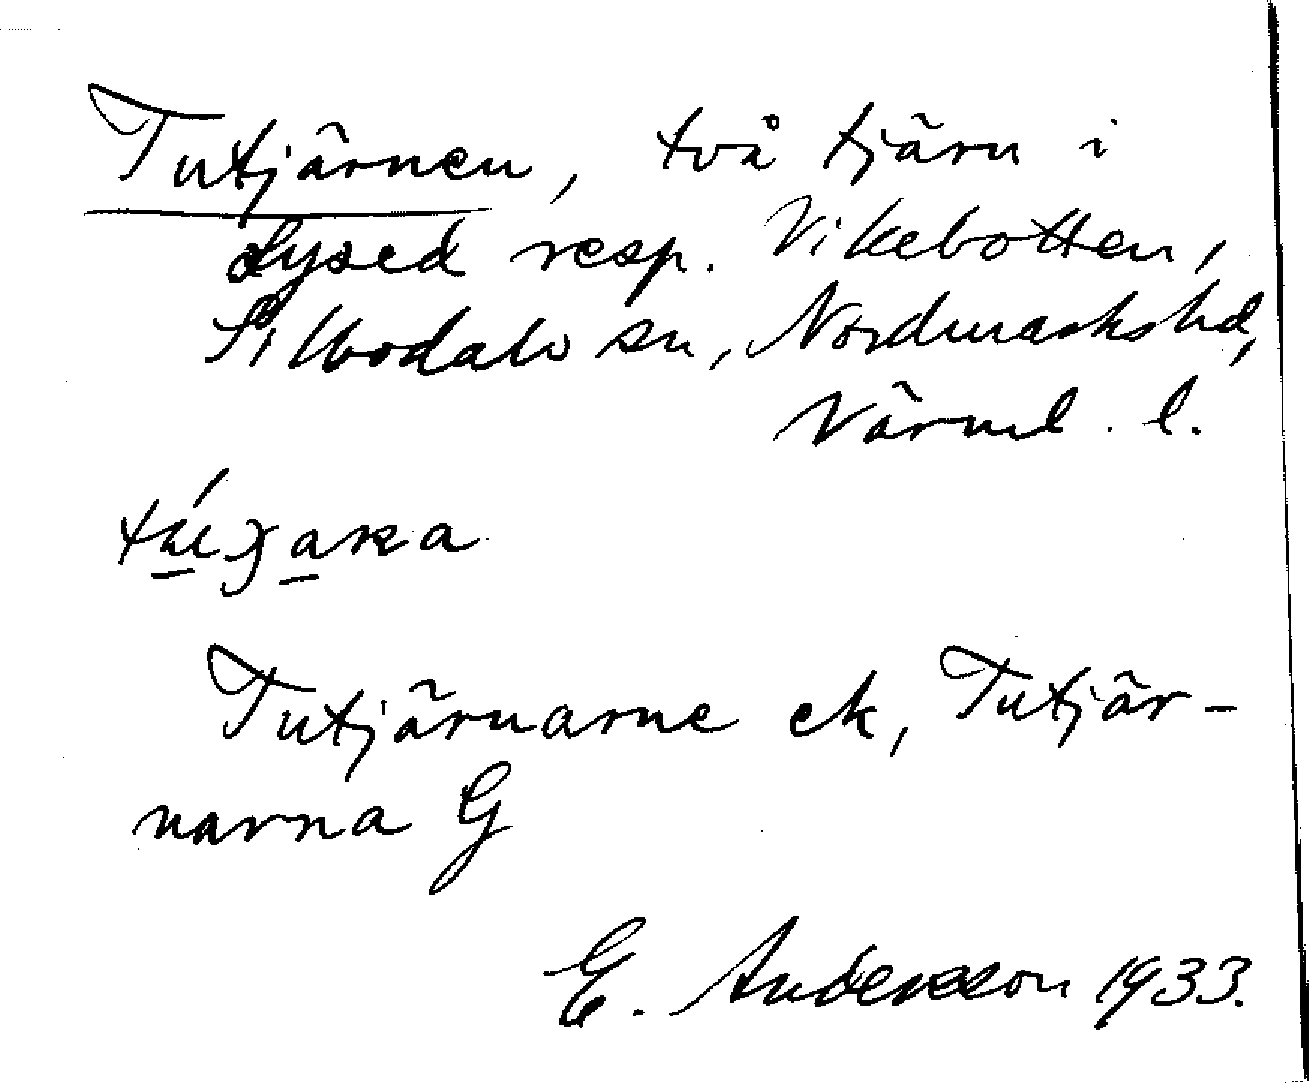 Tutjärnen, två tjärn i
Lysed resp. Vikebotten,
Silbodals sn, Nordmarkshd,
Värml. l.
Tutjärnarne ek, Tutjär-
narna G
E. Andersson 1933.